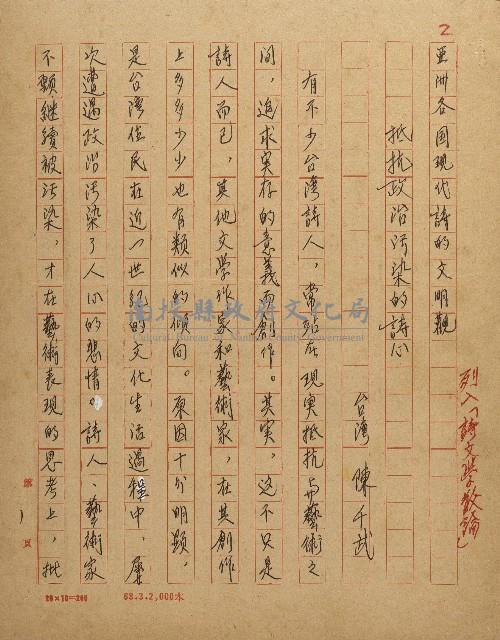 2
亞洲各国現代詩的文明觀
抵抗政治污染的詩心
台灣 陳千武
有不少台灣詩人，常站在現実抵抗與藝術之
间，追求実存的意義而創作。其実，这不只是
詩人而已，其他文學作家和藝術家，在其創作
上多多少少也有類似的傾向。原因十分明顯，
是台灣住民在近一世紀的文化生活過程中，屢
次遭遇政治污染了人心的悲情。詩人、藝術家
不願継續被污染，才在藝術表現的思考上，批
列入「詩文學散論」
南投縣政府文化局
Cultural Bureau of Nantou County Government
第 1 頁
20×10=200
68.3.2,000本